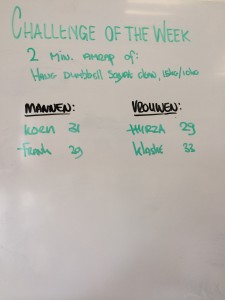 CHALLENGE OF THE WEEK
2 MIN. AMRAP OF:
HANG DUMBBELL SQUAT CLEAN,
MANNEN:
VROUWEN:
KOEN 31
29
FRANK 29
KLASKE 33